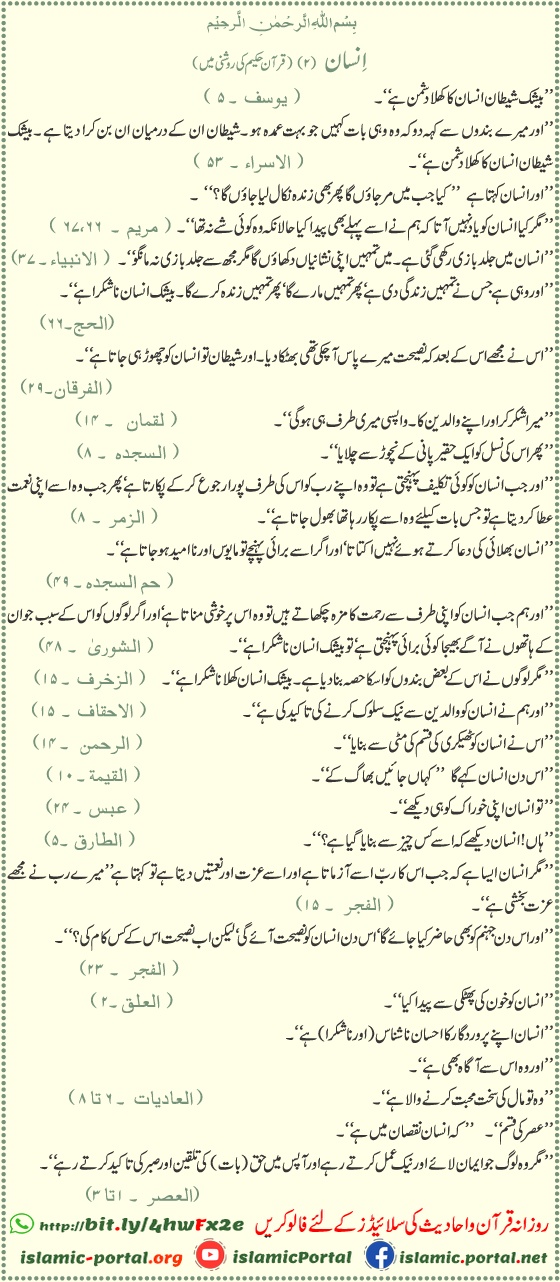 بِسْمِ اللهِ الرَّحْمٰنِ الرَّحِيْمِ
اِنسان (۲) (قرآن حکیم کی روشنی میں)
’’بیشک شیطان انسان کا کھلا دشمن ہے‘‘۔ (یوسف ۔ ۵)
’’اور میرے بندوں سے کہہ دو کہ وہ وہی بات کہیں جو بہت عمدہ ہو۔ شیطان ان کے درمیان ان بن کرا دیتا ہے۔ بیشک
شیطان انسان کا کھلا دشمن ہے‘‘۔ (الاسراء ۔ ۵۳)
’’اور انسان کہتا ہے ’’کیا جب میں مر جاؤں گا پھر بھی زندہ نکال لیا جاؤں گا؟‘‘۔
’’مگر کیا انسان کو یاد نہیں آتا کہ ہم نے اسے پہلے بھی پیدا کیا حالانکہ وہ کوئی شے نہ تھا‘‘۔ (مریم ۔ ۶۷،۶۶)
’’انسان میں جلد بازی رکھی گئی ہے۔ میں تمہیں اپنی نشانیاں دکھاؤں گا مگر مجھ سے جلد بازی نہ مانگو‘‘۔ (الانبیاء ۔ ۳۷)
’’اور وہی ہے جس نے تمہیں زندگی دی ہے‘ پھر تمہیں مارے گا‘ پھر تمہیں زندہ کرے گا۔ بیشک انسان ناشکرا ہے‘‘۔
(الحج۔۶۶)
’’اس نے مجھے اس کے بعد کہ نصیحت میرے پاس آ چکی تھی بھٹکا دیا۔ اور شیطان تو انسان کو چھوڑ ہی جاتا ہے‘‘۔
(الفرقان۔۲۹)
’’میرا شکر کر اور اپنے والدین کا۔ واپسی میری طرف ہی ہو گی‘‘۔ (لقمان ۔ ۱۴)
’’پھر اس کی نسل کو ایک حقیر پانی کے نچوڑ سے چلایا‘‘۔ (السجدہ ۔ ۸)
’’اور جب انسان کو کوئی تکلیف پہنچتی ہے تو وہ اپنے رب کو اس کی طرف پورا رجوع کر کے پکارتا ہے‘ پھر جب وہ اسے اپنی نعمت
عطا کر دیتا ہے تو جس بات کیلئے وہ اسے پکار رہا تھا بھول جاتا ہے‘‘۔ (الزمر ۔ ۸)
’’انسان بھلائی کی دعا کرتے ہوئے نہیں اکتاتا‘ اور اگر اسے برائی پہنچے تو مایوس اور نا امید ہو جاتا ہے‘‘۔
(حم السجدہ ۔ ۴۹)
’’اور ہم جب انسان کو اپنی طرف سے رحمت کا مزہ چکھاتے ہیں تو وہ اس پر خوشی مناتا ہے‘ اور اگر لوگوں کو اس کے سبب جو ان
کے ہاتھوں نے آگے بھیجا کوئی برائی پہنچتی ہے‘ تو بیشک انسان ناشکرا ہے‘‘۔ (الشوریٰ ۔ ۴۸)
’’مگر لوگوں نے اس کے بعض بندوں کو اسکا حصہ بنا دیا ہے۔ بیشک انسان کھلا ناشکرا ہے‘‘۔ (الزخرف ۔ ۱۵)
’’اور ہم نے انسان کو والدین سے نیک سلوک کرنے کی تاکید کی ہے‘‘۔ (الاحقاف ۔ ۱۵)
’’اس نے انسان کو ٹھیکری کی قسم کی مٹی سے بنایا‘‘۔ (الرحمن ۔ ۱۴)
’’اس دن انسان کہے گا ’’کہاں جائیں بھاگ کے‘‘۔ (القیمة ۔ ۱۰)
’’تو انسان اپنی خوراک کو ہی دیکھے‘‘۔ (عبس ۔ ۲۴)
’’ہاں! انسان دیکھے کہ اسے کس چیز سے بنایا گیا ہے؟‘‘۔ (الطارق ۔۵)
’’مگر انسان ایسا ہے کہ جب اس کا ربّ اسے آزماتا ہے اور اسے عزت اور نعمتیں دیتا ہے تو کہتا ہے ’’میرے رب نے مجھے
عزت بخشی ہے‘‘۔ (الفجر ۔ ۱۵)
’’اور اس دن جہنم کو بھی حاضر کیا جائے گا‘ اس دن انسان کو نصیحت آئے گی‘ لیکن اب نصیحت اس کے کس کام کی؟‘‘۔
(الفجر ۔ ۲۳)
’’انسان کو خون کی پھٹکی سے پیدا کیا‘‘۔ (العلق ۔۲)
’’انسان اپنے پروردگار کا احسان ناشناس (اور ناشکرا) ہے‘‘۔
’’اور وہ اس سے آگاہ بھی ہے‘‘۔
’’وہ تو مال کی سخت محبت کرنے والا ہے‘‘۔ (العادیات ۔ ۶ تا ۸)
’’عصر کی قسم‘‘۔ ’’کہ انسان نقصان میں ہے‘‘۔
’’مگر وہ لوگ جو ایمان لائے اور نیک عمل کرتے رہے اور آپس میں حق (بات) کی تلقین اور صبر کی تاکید کرتے رہے‘‘۔
(العصر ۔ ۱ تا ۳)
روزانہ قرآن و احادیث کی سلائیڈز کے لئے فالو کریں http://bit.ly/4hwFx2e
islamic-portal.org islamicPortal islamic.portal.net